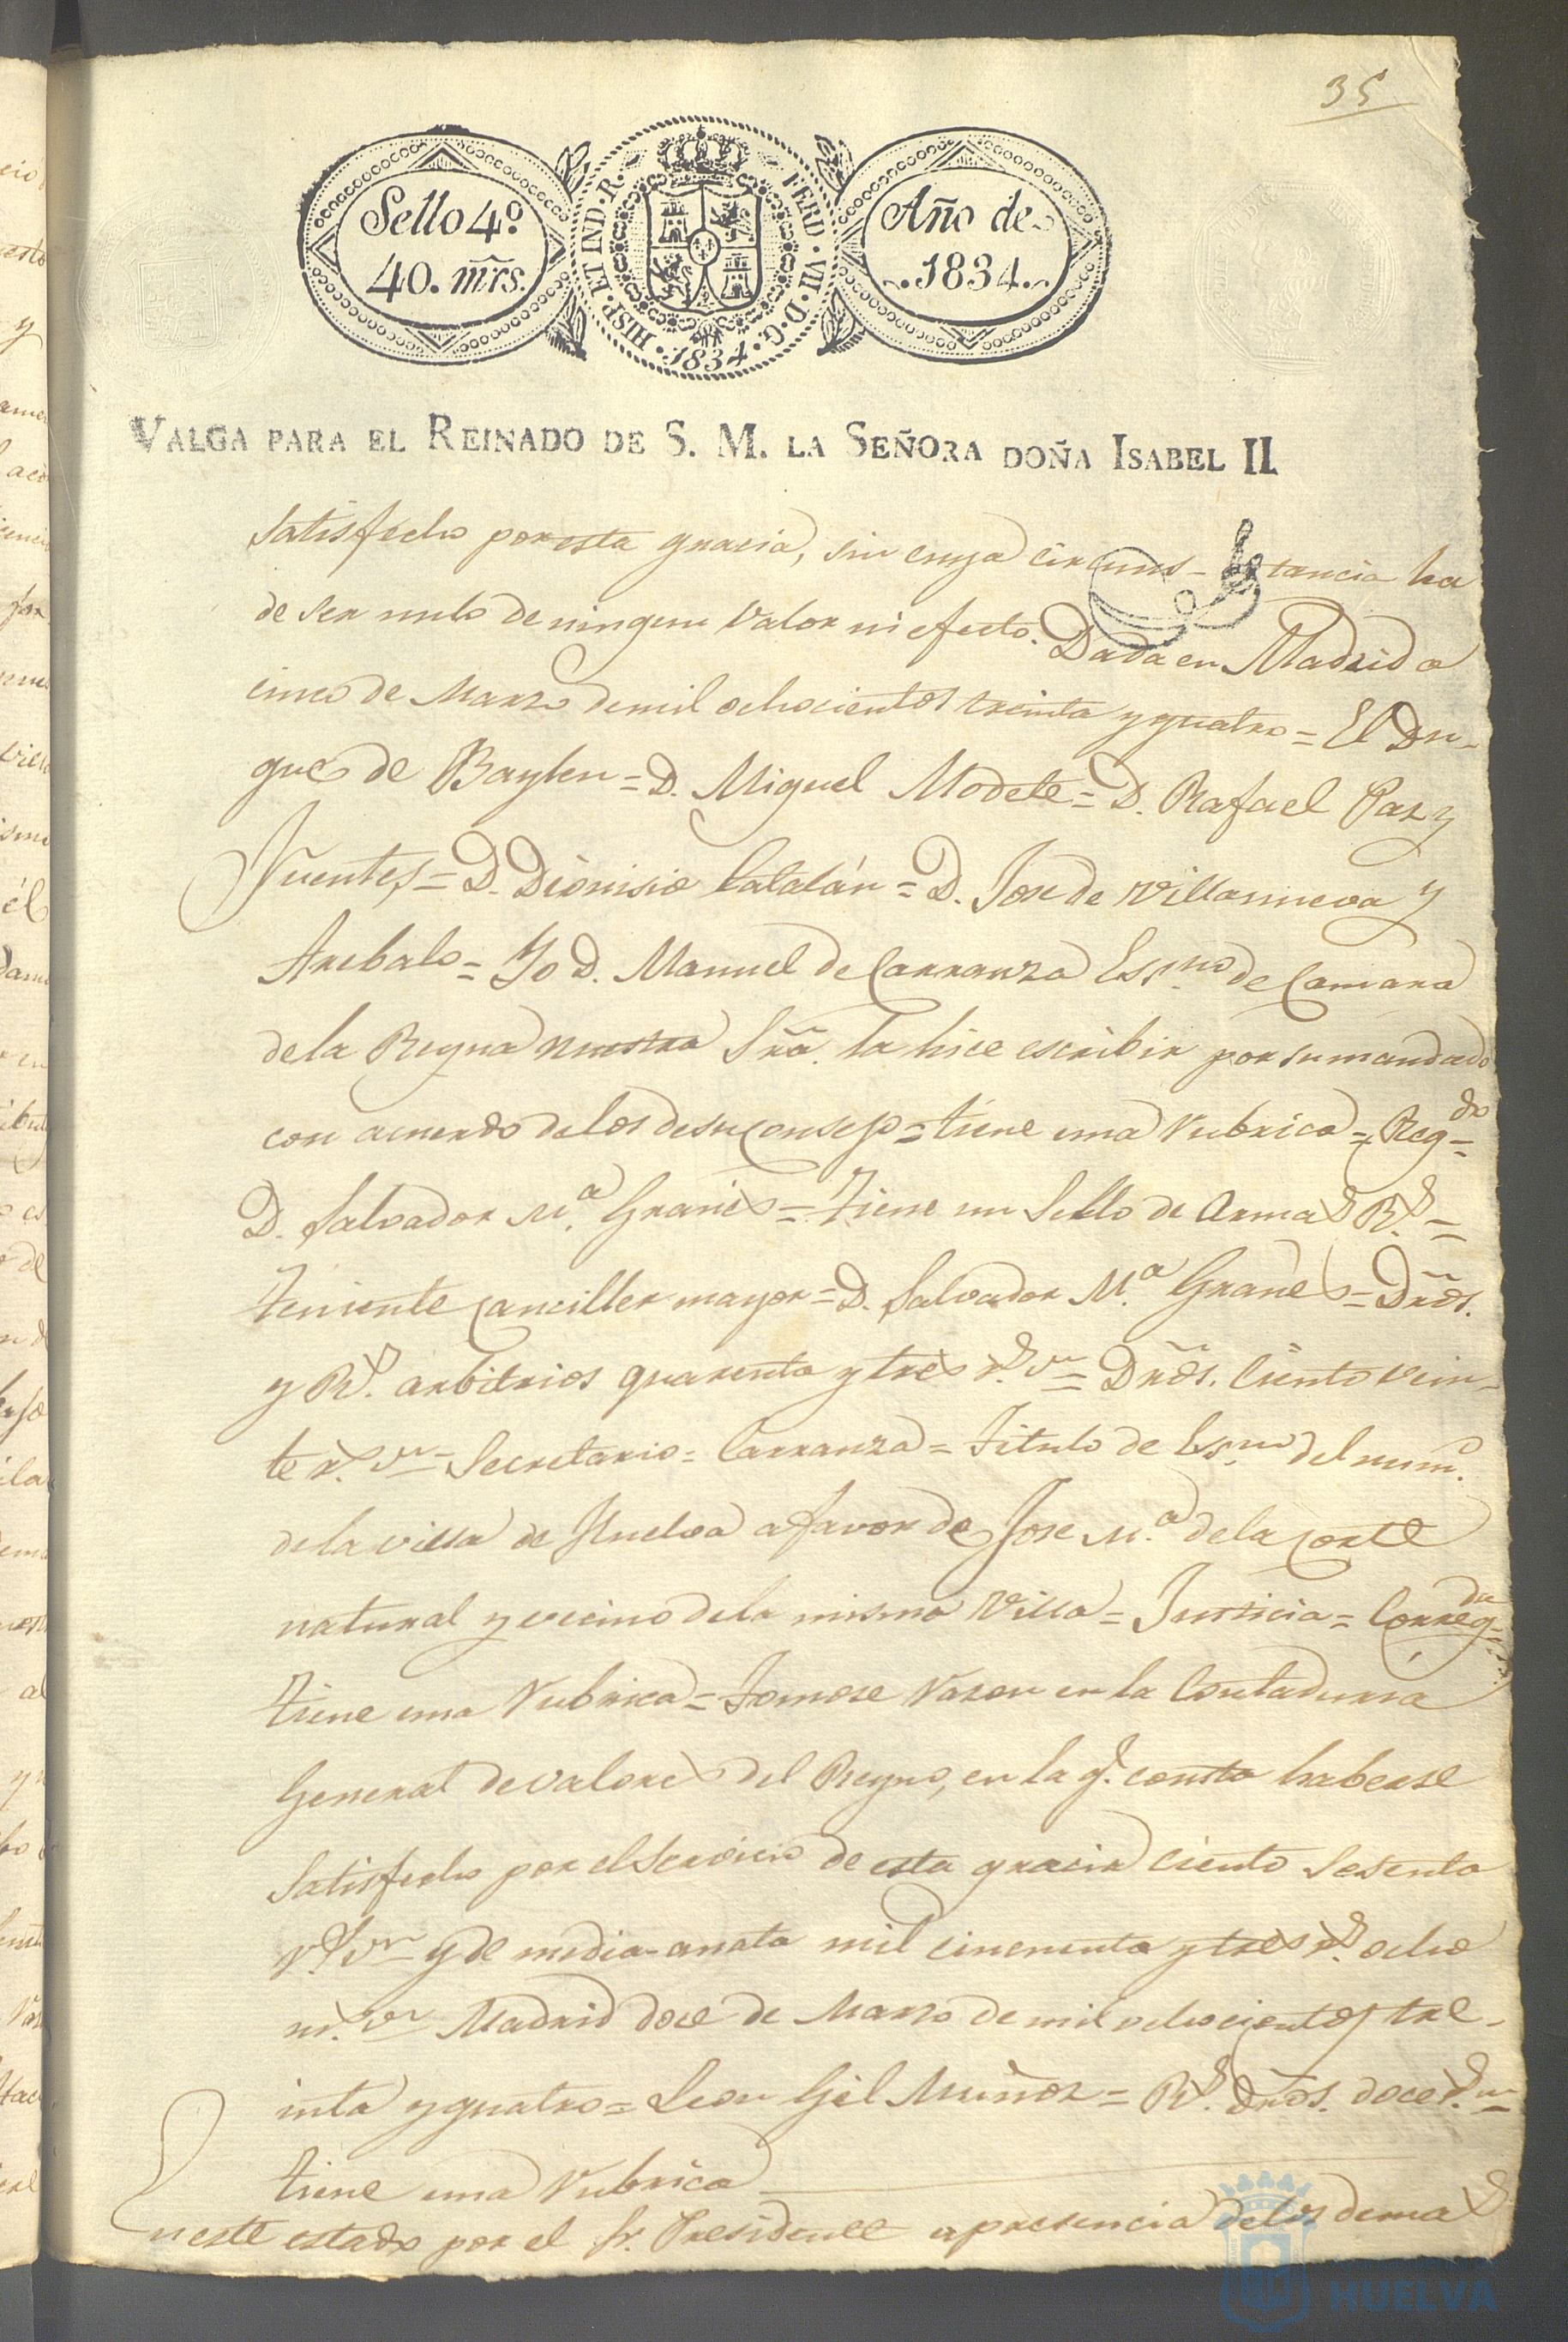 35
Sello 4º
40. mrs.
HISP. ET IND. R. FERD. VII. D. G. 1834.
Año de
1834.
VALGA PARA EL REINADO DE S. M. LA SEÑORA DOÑA ISABEL II
satisfecho por esta gracia, sin cuya circuns-tancia ha
de ser nulo de ningun valor ni efecto. Dada en Madrid a
cinco de Marzo de mil ochocientos treinta y quatro = El Du-
que de Baylen = D. Miguel Modete = D. Rafael Paz y
Fuentes = D. Dionisio Catalán = D. Jose de Villanueva y
Arebalo = Yo D. Manuel de Carranza Essno de Camara
de la Reyna nuestra Sra. la hice escribir por su mandado
con acuerdo de los de su Consejo = tiene una rubrica = Regdo =
D. Salvador M.a Granés = Tiene un Sello de Armas Rs. =
Teniente Canciller mayor = D. Salvador M.a Granés = Dros.
y Rs. arbitrios quarenta y tres rs. vn = Dros. Ciento vein-
te rs. vn = Secretario = Carranza = Titulo de Essno del num.o
de la villa de Huelva a favor de Jose M.a de la Corte
natural y vecino de la misma Villa = Justicia = Corregda =
tiene una rubrica = Tomose razon en la Contaduria
General de valores del Reyno, en la q. consta haberse
satisfecho por el servicio de esta gracia ciento sesenta
rs. vn y de media-anata mil cincuenta y tres rs. ocho
m. vn Madrid doce de Marzo de mil ochocientos tre-
inta y quatro = Leon Gil Muñoz = Rs. dros. doce rs. vn =
tiene una rubrica
n este estado por el Sr. Presidente a presencia de los demas
HUELVA